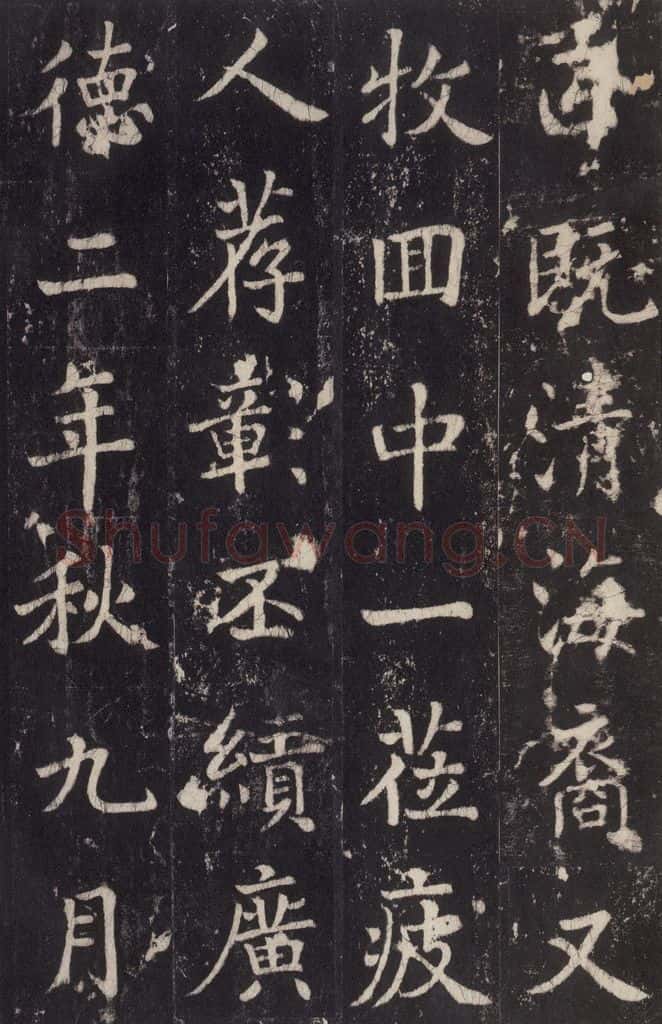 既清海裔又
牧回中一莅疲
人荐彰丕績廣
德二年秋九月
Shufawang.CN